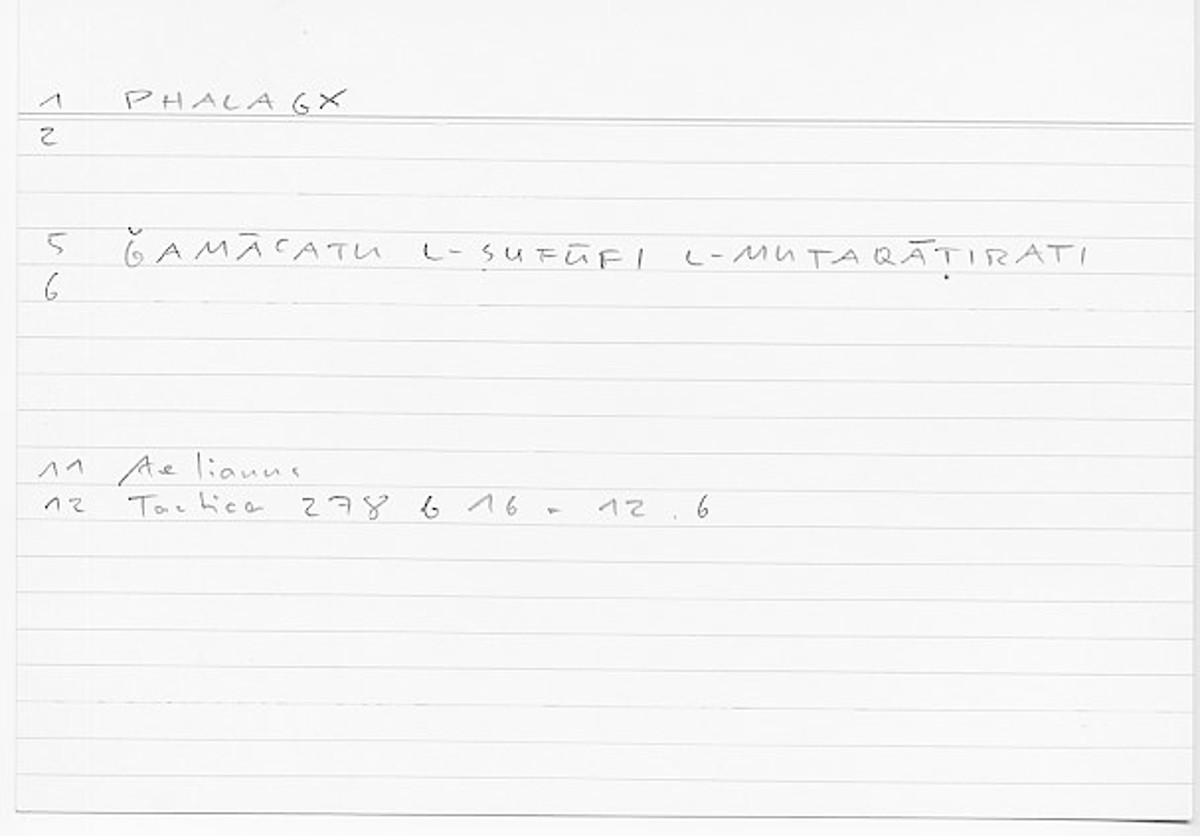 1 PHALAGX
2
5 ǦAMĀCATU L-ṢUFŪFI L-MUTAQĀṬIRATI
6
11 Aelianus
12 Tactica 278 G 16 - 12.6